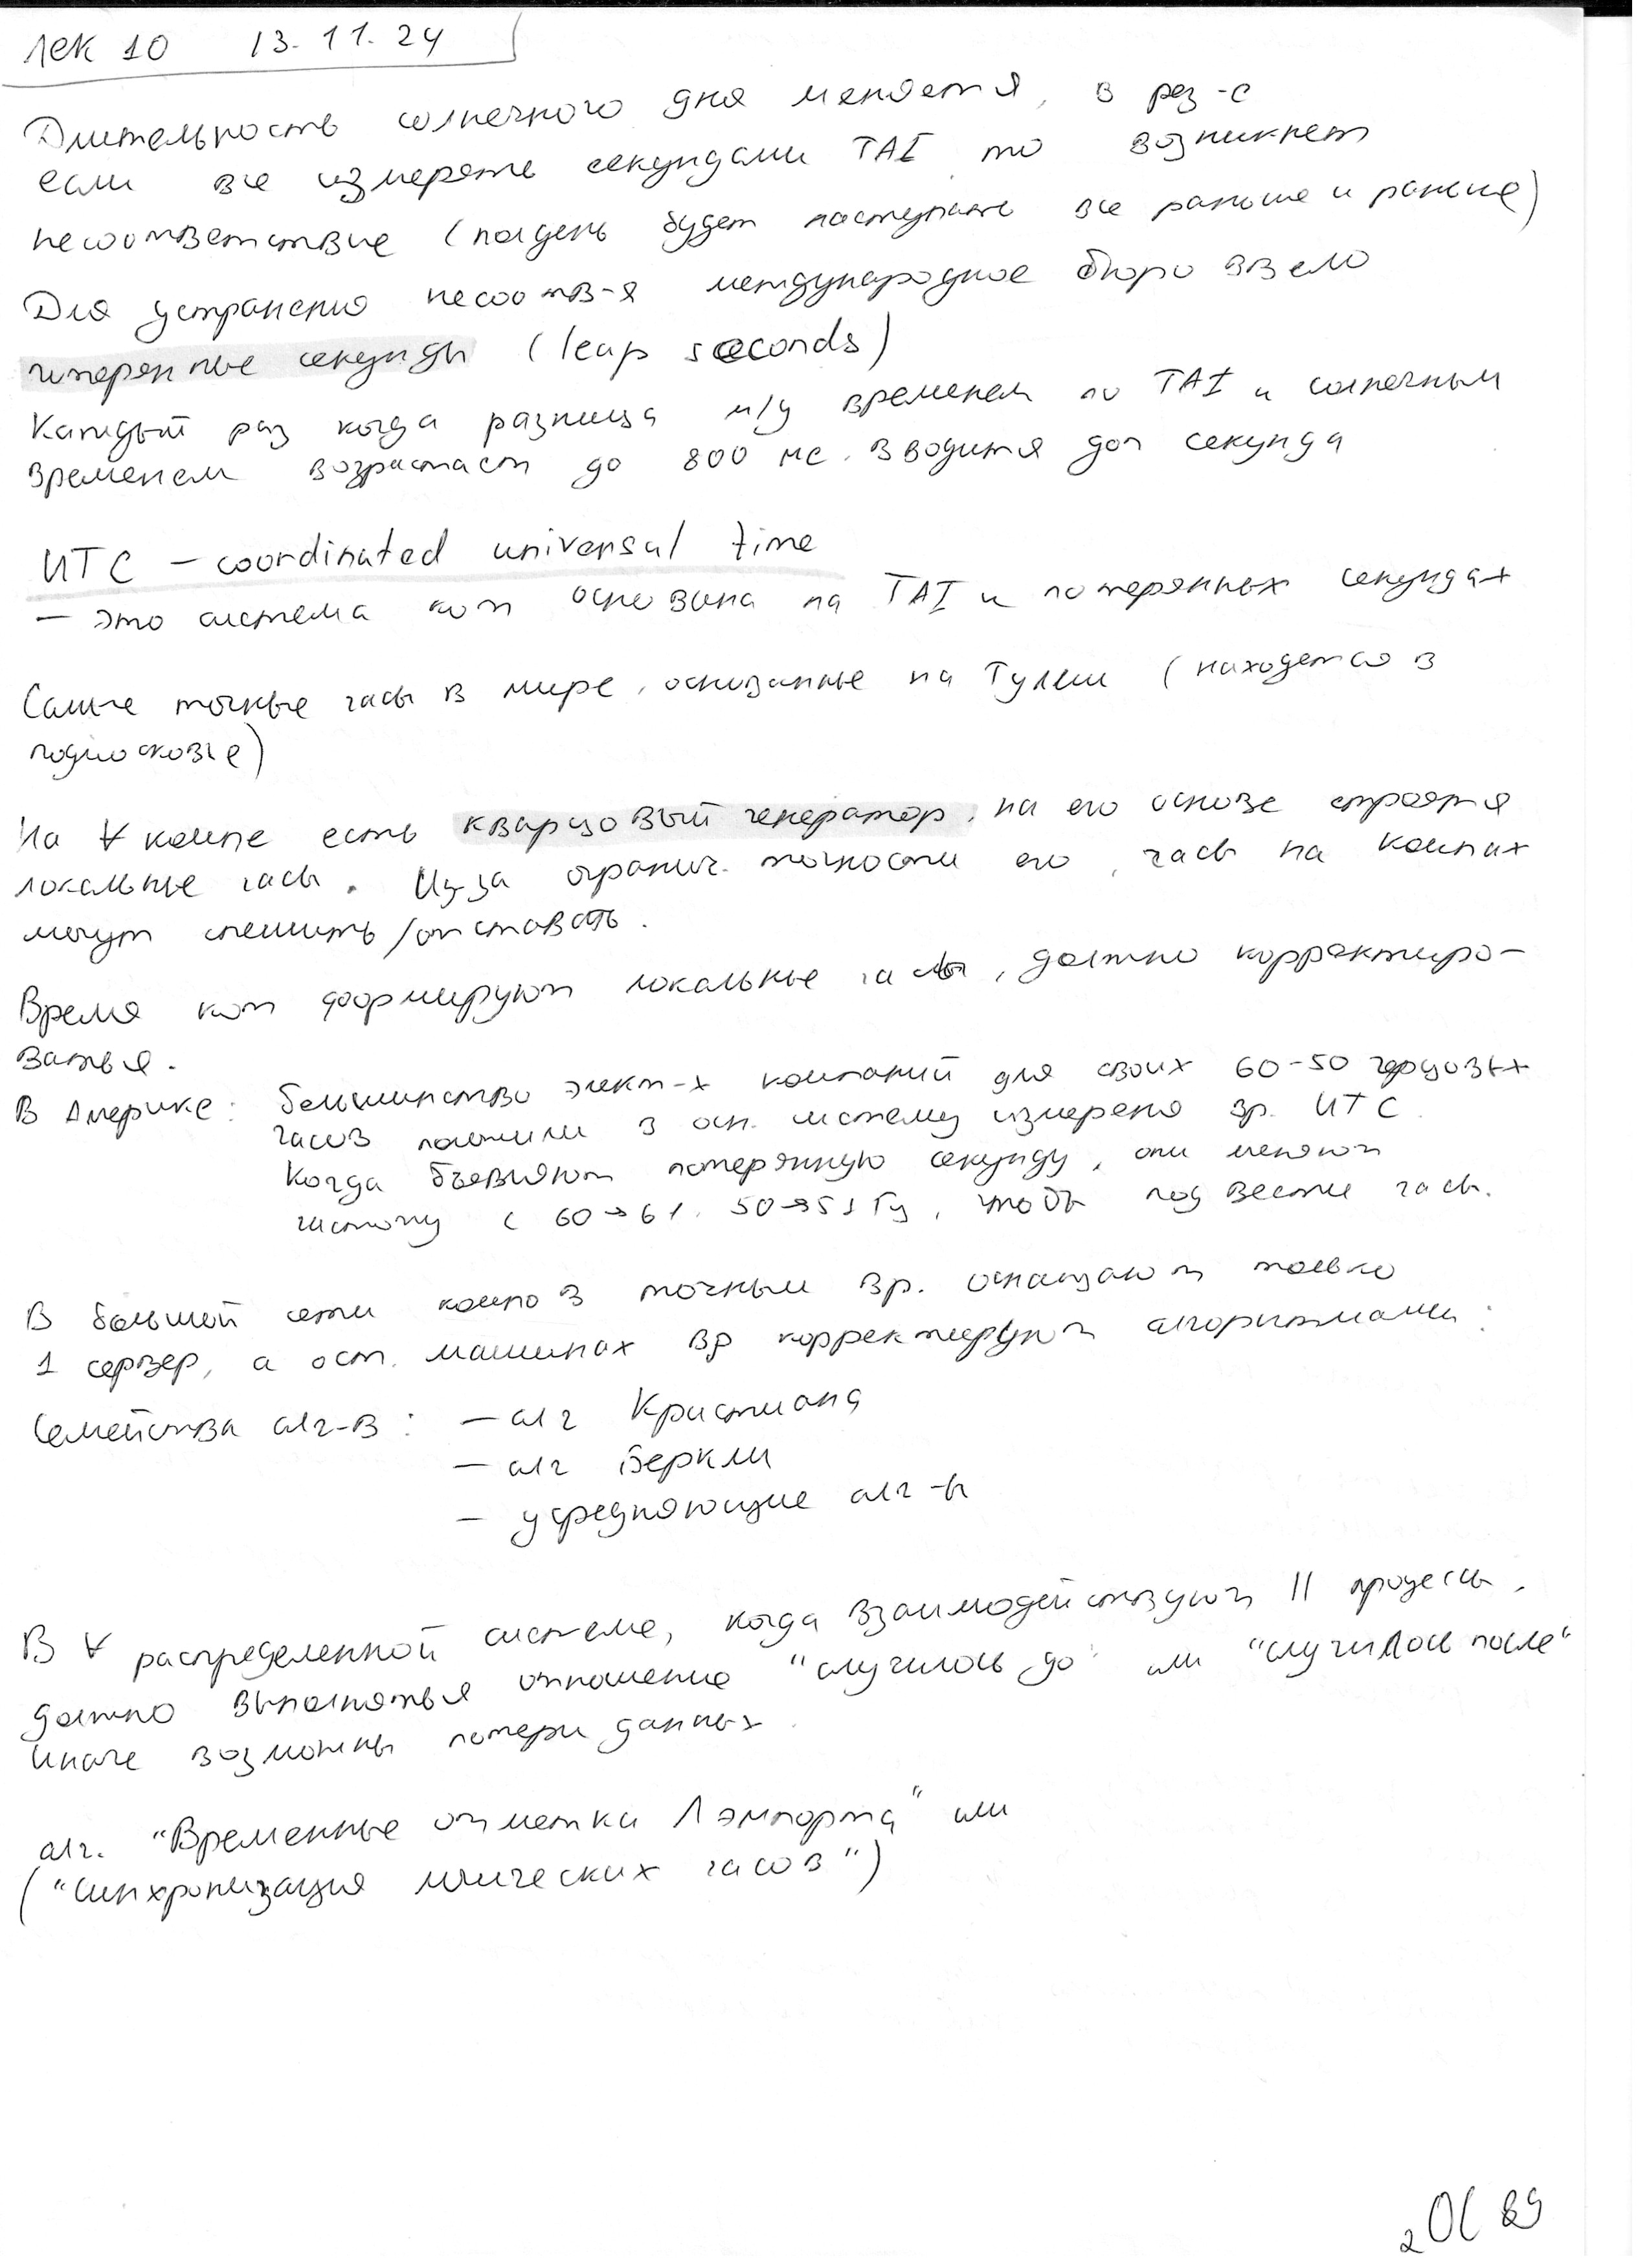 Лек 10 13.11.24
Длительность солнечного дня меняется, в рез-е
если все измерять секундами TAI то возникнет
несоответствие (полдень будет наступать все раньше и раньше)
Для устранения несоотв-я международное бюро ввело
потерянные секунды (leap seconds)
Каждый раз когда разница м/у временем по TAI и солнечным
временем возрастает до 800 мс. вводится доп секунда
UTC – coordinated universal time
– это система кот основана на TAI и потерянных секундах
Самые точные часы в мире, основанные на Тулии (находятся в
подмосковье)
На ∀ компе есть кварцовый генератор, на его основе строятся
локальные часы. Из за огранич. точности его, часы на компах
могут спешить/отставать.
Время кот формируют локальные часы, должно корректиро-
ваться.
В Америке: большинство элект-х компаний для своих 60-50 герцовых
часов положили в осн. систему измерения вр. UTC.
Когда объявляют потерянную секунду, они меняют
частоту с 60→61, 50→51 Гц, чтобы подвести часы.
В большой сети компов точным вр. оснащают только
1 сервер, а ост. машинах вр корректируют алгоритмами:
Семейства алг-в: – алг Кристиана
– алг Беркли
– усредняющие алг-ы
В ∀ распределенной системе, когда взаимодействуют || процессы,
должно выполняться отношение "случилось до" или "случилось после"
иначе возможны потери данных.
алг. "Временные отметки Лэмпорта" или
("Синхронизация логических часов")
2 ОС 89